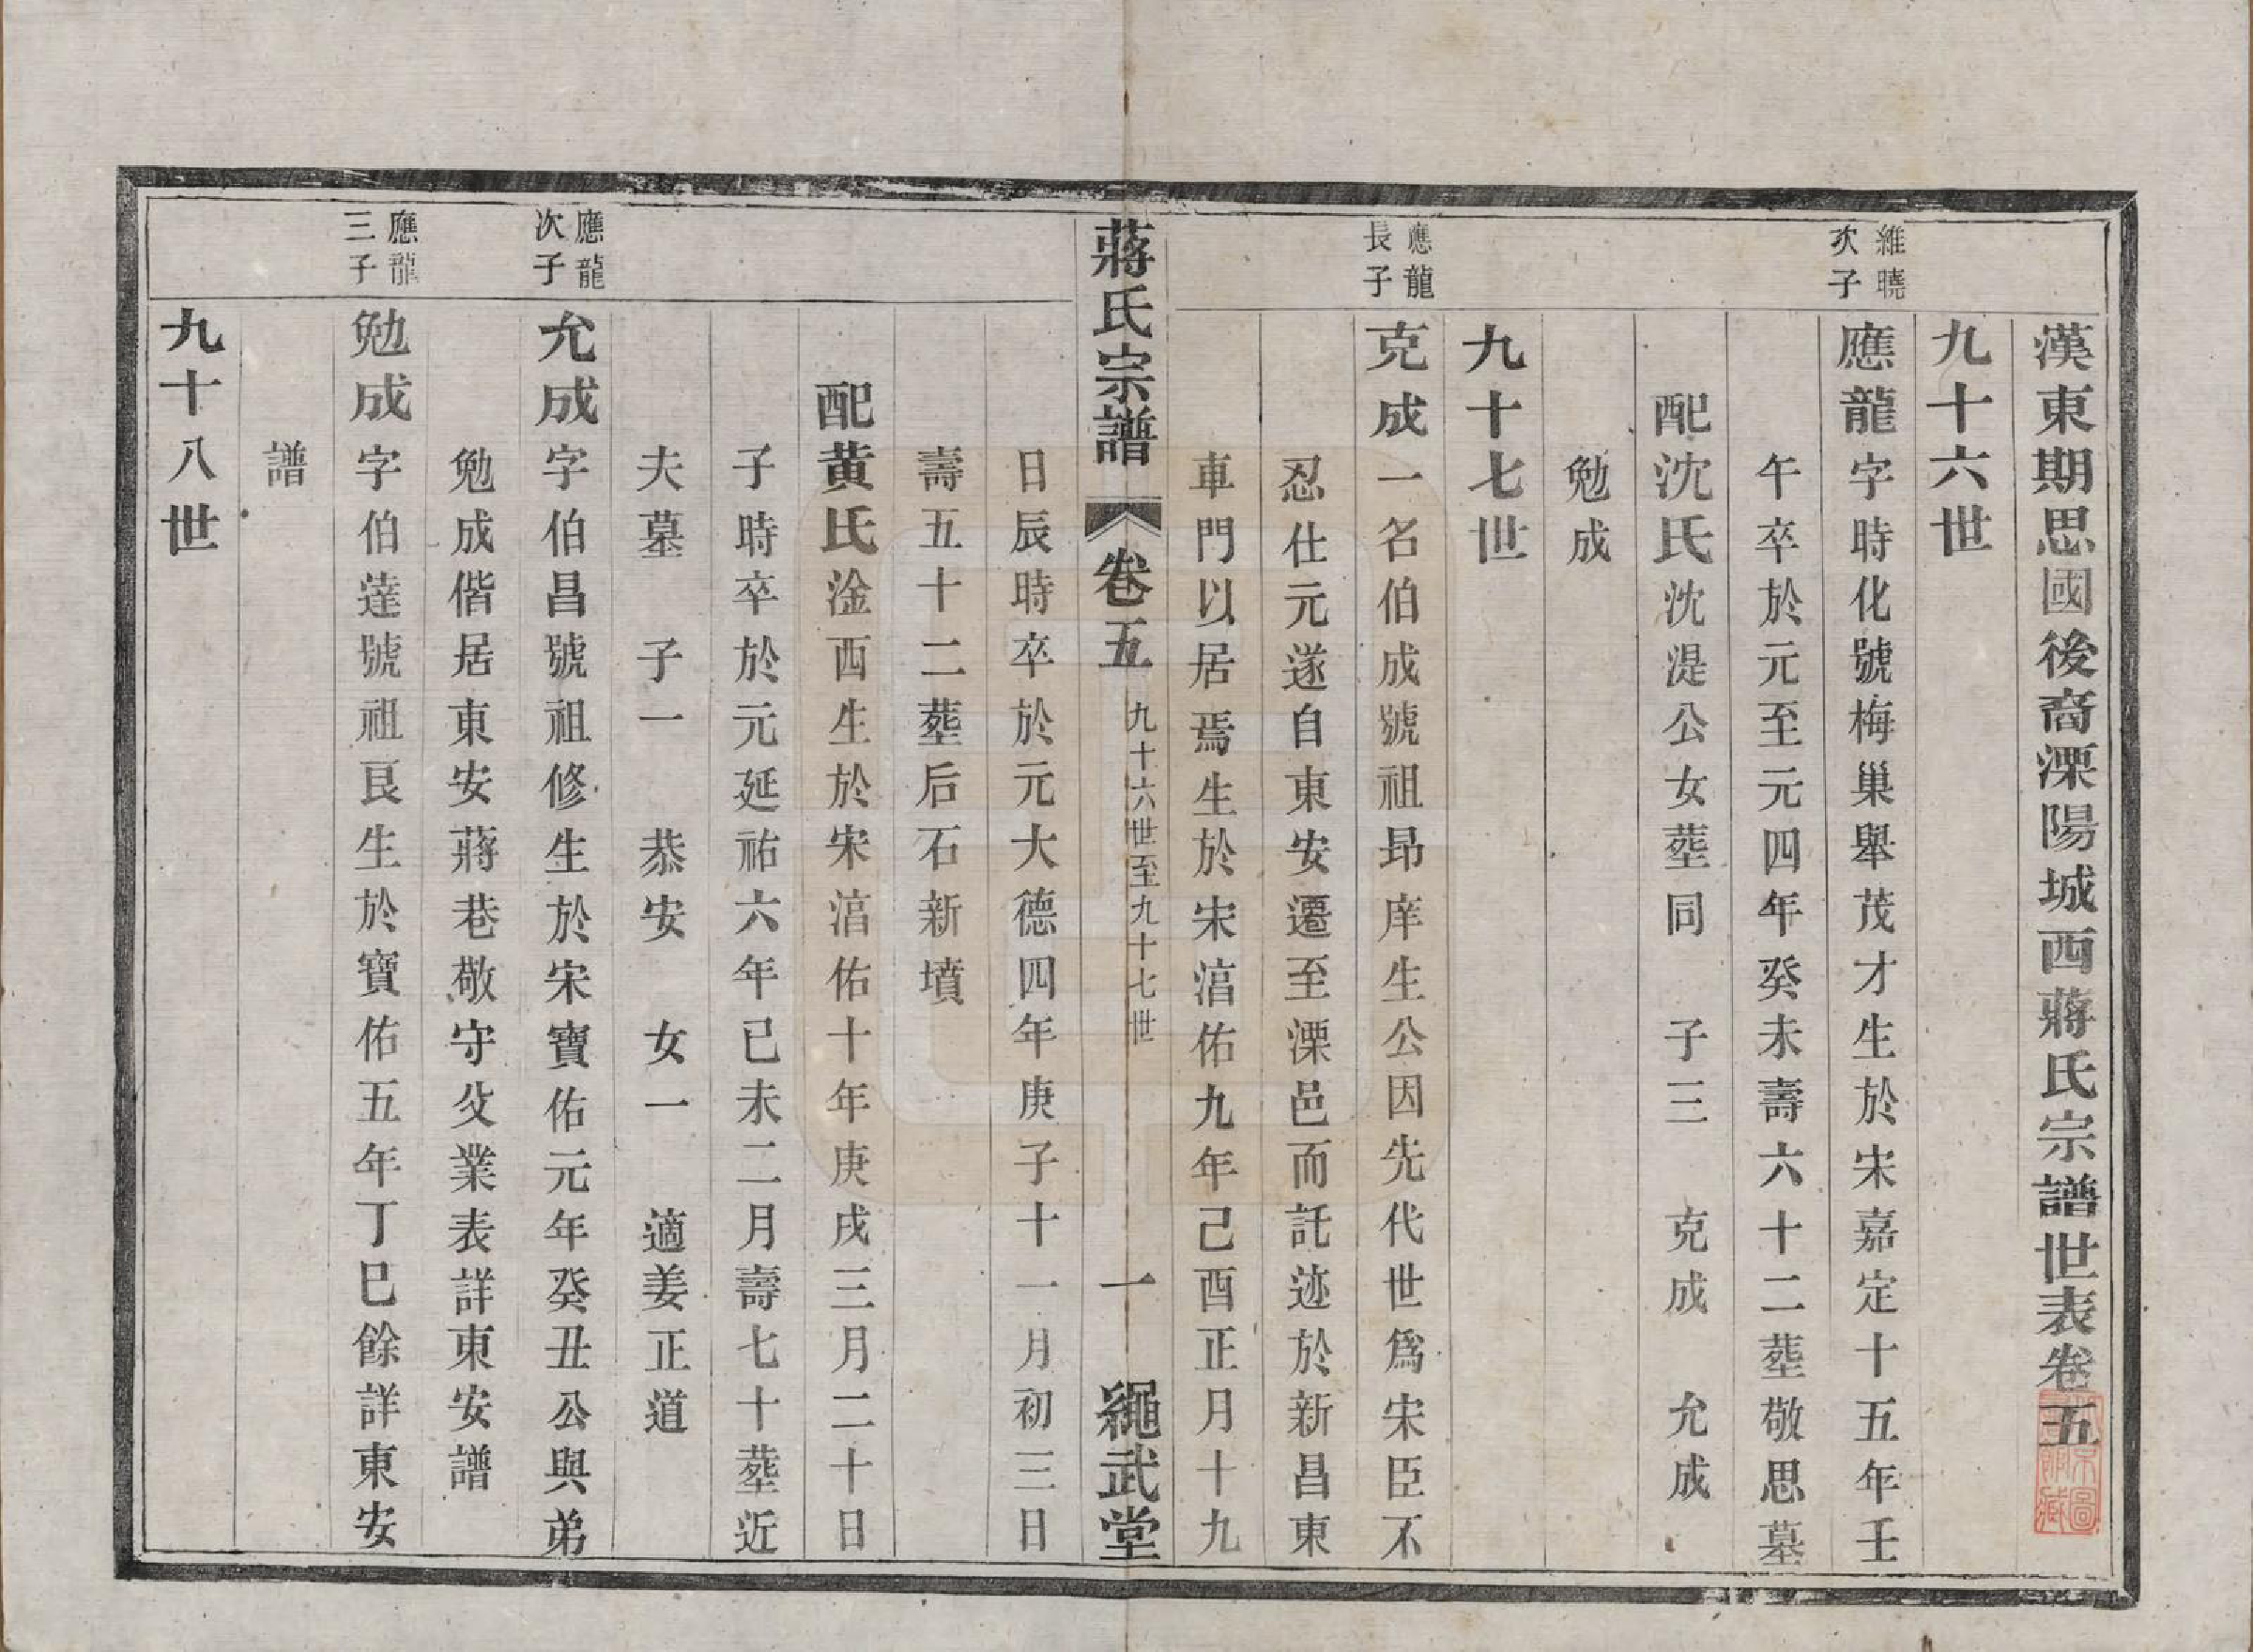 漢東期思國後裔溧陽城西蔣氏宗譜世表卷五
九十六世
維曉次子
應龍字時化號梅巢舉茂才生於宋嘉定十五年壬
午卒於元至元四年癸未壽六十二塟敬思墓
配沈氏沈湜公女塟同 子三 克成 允成
勉成
九十七世
應龍長子
克成一名伯成號祖昂庠生公因先代世爲宋臣不
忍仕元遂自東安遷至溧邑而託迹於新昌東
車門以居焉生於宋湻佑九年己酉正月十九
蔣氏宗譜 卷五 九十六世至九十七世 一 繩武堂
日辰時卒於元大德四年庚子十一月初三日
壽五十二塟后石新墳
配黄氏淦西生於宋湻佑十年庚戌三月二十日
子時卒於元延祐六年已未二月壽七十塟近
夫墓 子一 恭安 女一 適姜正道
應龍次子
允成字伯昌號祖修生於宋寶佑元年癸丑公與弟
勉成偕居東安蔣巷敬守父業表詳東安譜
應龍三子
勉成字伯達號祖艮生於寶佑五年丁巳餘詳東安
譜
九十八世